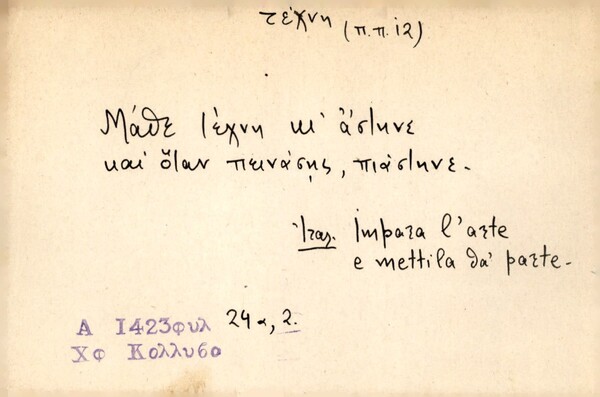 τέχνη (π.π.12)
Μάθε τέχνη κι' ἄστηνε
καὶ ὅταν πεινάσῃς, πιάστηνε.
Ἰταλ. Impara l'arte
e mettila da' parte.
Α 1423φυλ 24α, 2.
Χφ Κολλυβα